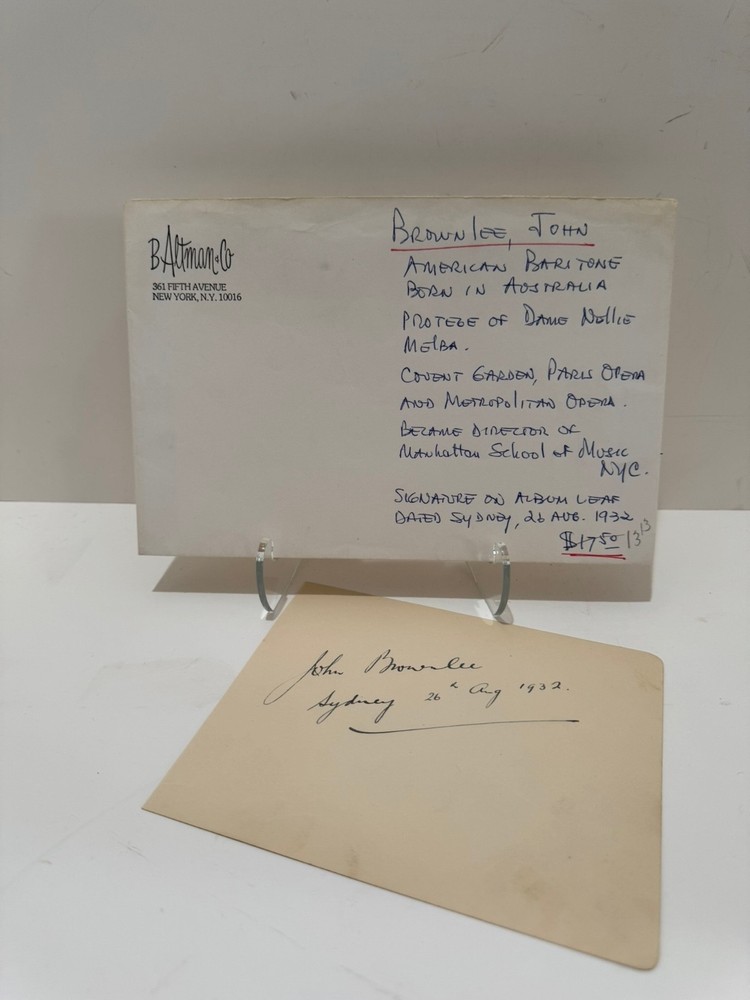 B Altman & Co
361 FIFTH AVENUE
NEW YORK, N.Y. 10016
BROWNLEE, JOHN
AMERICAN BARITONE
BORN IN AUSTRALIA
PROTEGE OF DAME NELLIE
MELBA.
COVENT GARDEN, PARIS OPERA
AND METROPOLITAN OPERA.
BECAME DIRECTOR OF
Manhattan School of Music
NYC.
SIGNATURE ON ALBUM LEAF
DATED SYDNEY, 26 AUG. 1932
$17.50 13 13
John Brownlee
Sydney 26th Aug 1932.